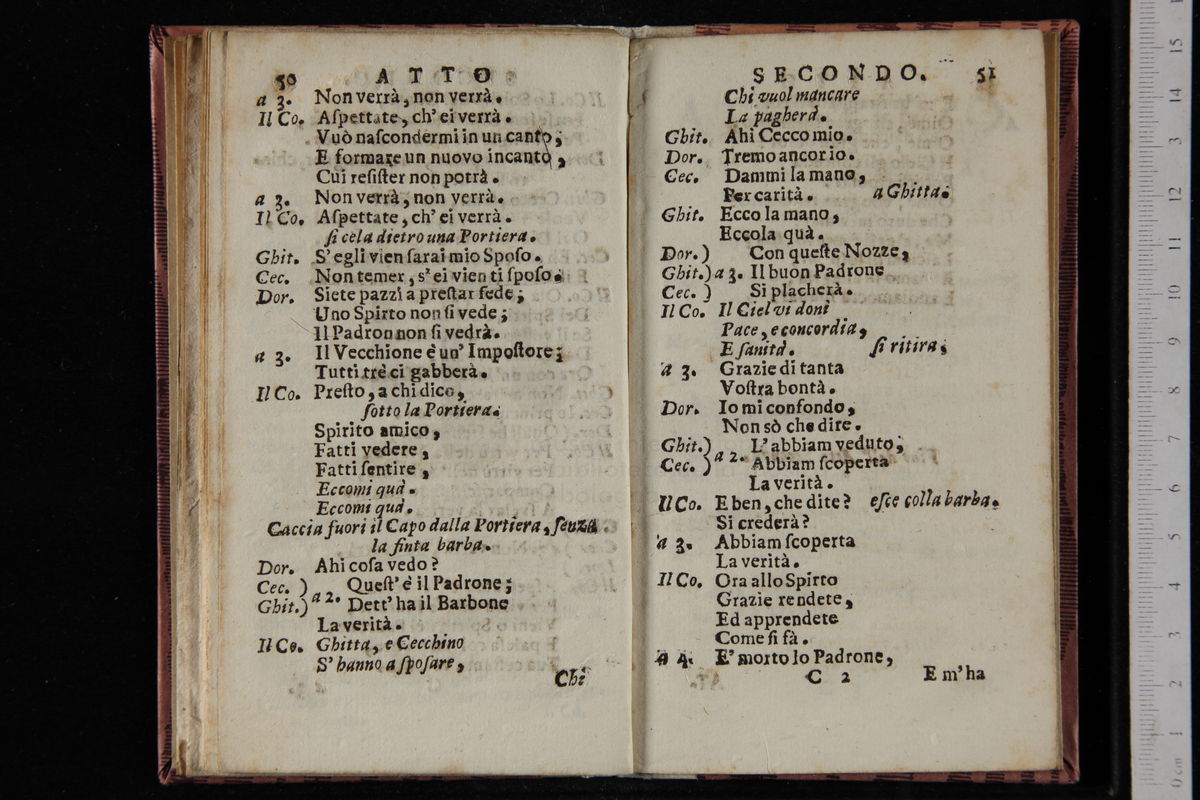 50 ATTO
a 3. Non verrà, non verrà.
Il Co. Aſpettate, ch' ei verrà.
Vuò naſcondermi in un canto;
E formare un nuovo incanto,
Cui reſiſter non potrà.
a 3. Non verrà, non verrà.
Il Co. Aſpettate, ch' ei verrà.
ſi cela dietro una Portiera.
Ghit. S' egli vien ſarai mio Spoſo.
Cec. Non temer, s' ei vien ti ſpoſo.
Dor. Siete pazzi a preſtar fede;
Uno Spirto non ſi vede;
Il Padron non ſi vedrà.
a 3. Il Vecchione è un' Impoſtore;
Tutti trè ci gabberà.
Il Co. Preſto, a chi dico,
ſotto la Portiera.
Spirito amico,
Fatti vedere,
Fatti ſentire,
Eccomi quà.
Eccomi quà.
Caccia fuori il Capo dalla Portiera, ſenza
la finta barba.
Dor. Ahi coſa vedo?
Cec. ) a 2. Queſt' è il Padrone;
Ghit.) Dett' ha il Barbone
La verità.
Il Co. Ghitta, e Cecchino
S' hanno a ſpoſare,
Chi
SECONDO. 51
Chi vuol mancare
La pagherà.
Ghit. Ahi Cecco mio.
Dor. Tremo ancor io.
Cec. Dammi la mano,
Per carità. a Ghitta.
Ghit. Ecco la mano,
Eccola quà.
Dor. ) Con queſte Nozze,
Ghit.) a 3. Il buon Padrone
Cec. ) Si placherà.
Il Co. Il Ciel vi doni
Pace, e concordia,
E ſanità. ſi ritira;
a 3. Grazie di tanta
Voſtra bontà.
Dor. Io mi confondo,
Non sò che dire.
Ghit.) a 2. L' abbiam veduto;
Cec. ) Abbiam ſcoperta
La verità.
Il Co. E ben, che dite? eſce colla barba.
Si crederà?
a 3. Abbiam ſcoperta
La verità.
Il Co. Ora allo Spirto
Grazie rendete,
Ed apprendete
Come ſi fà.
a 4. E' morto lo Padrone,
C 2 E m' ha
15
14
13
12
11
10
9
8
7
6
5
4
3
2
1
0 cm